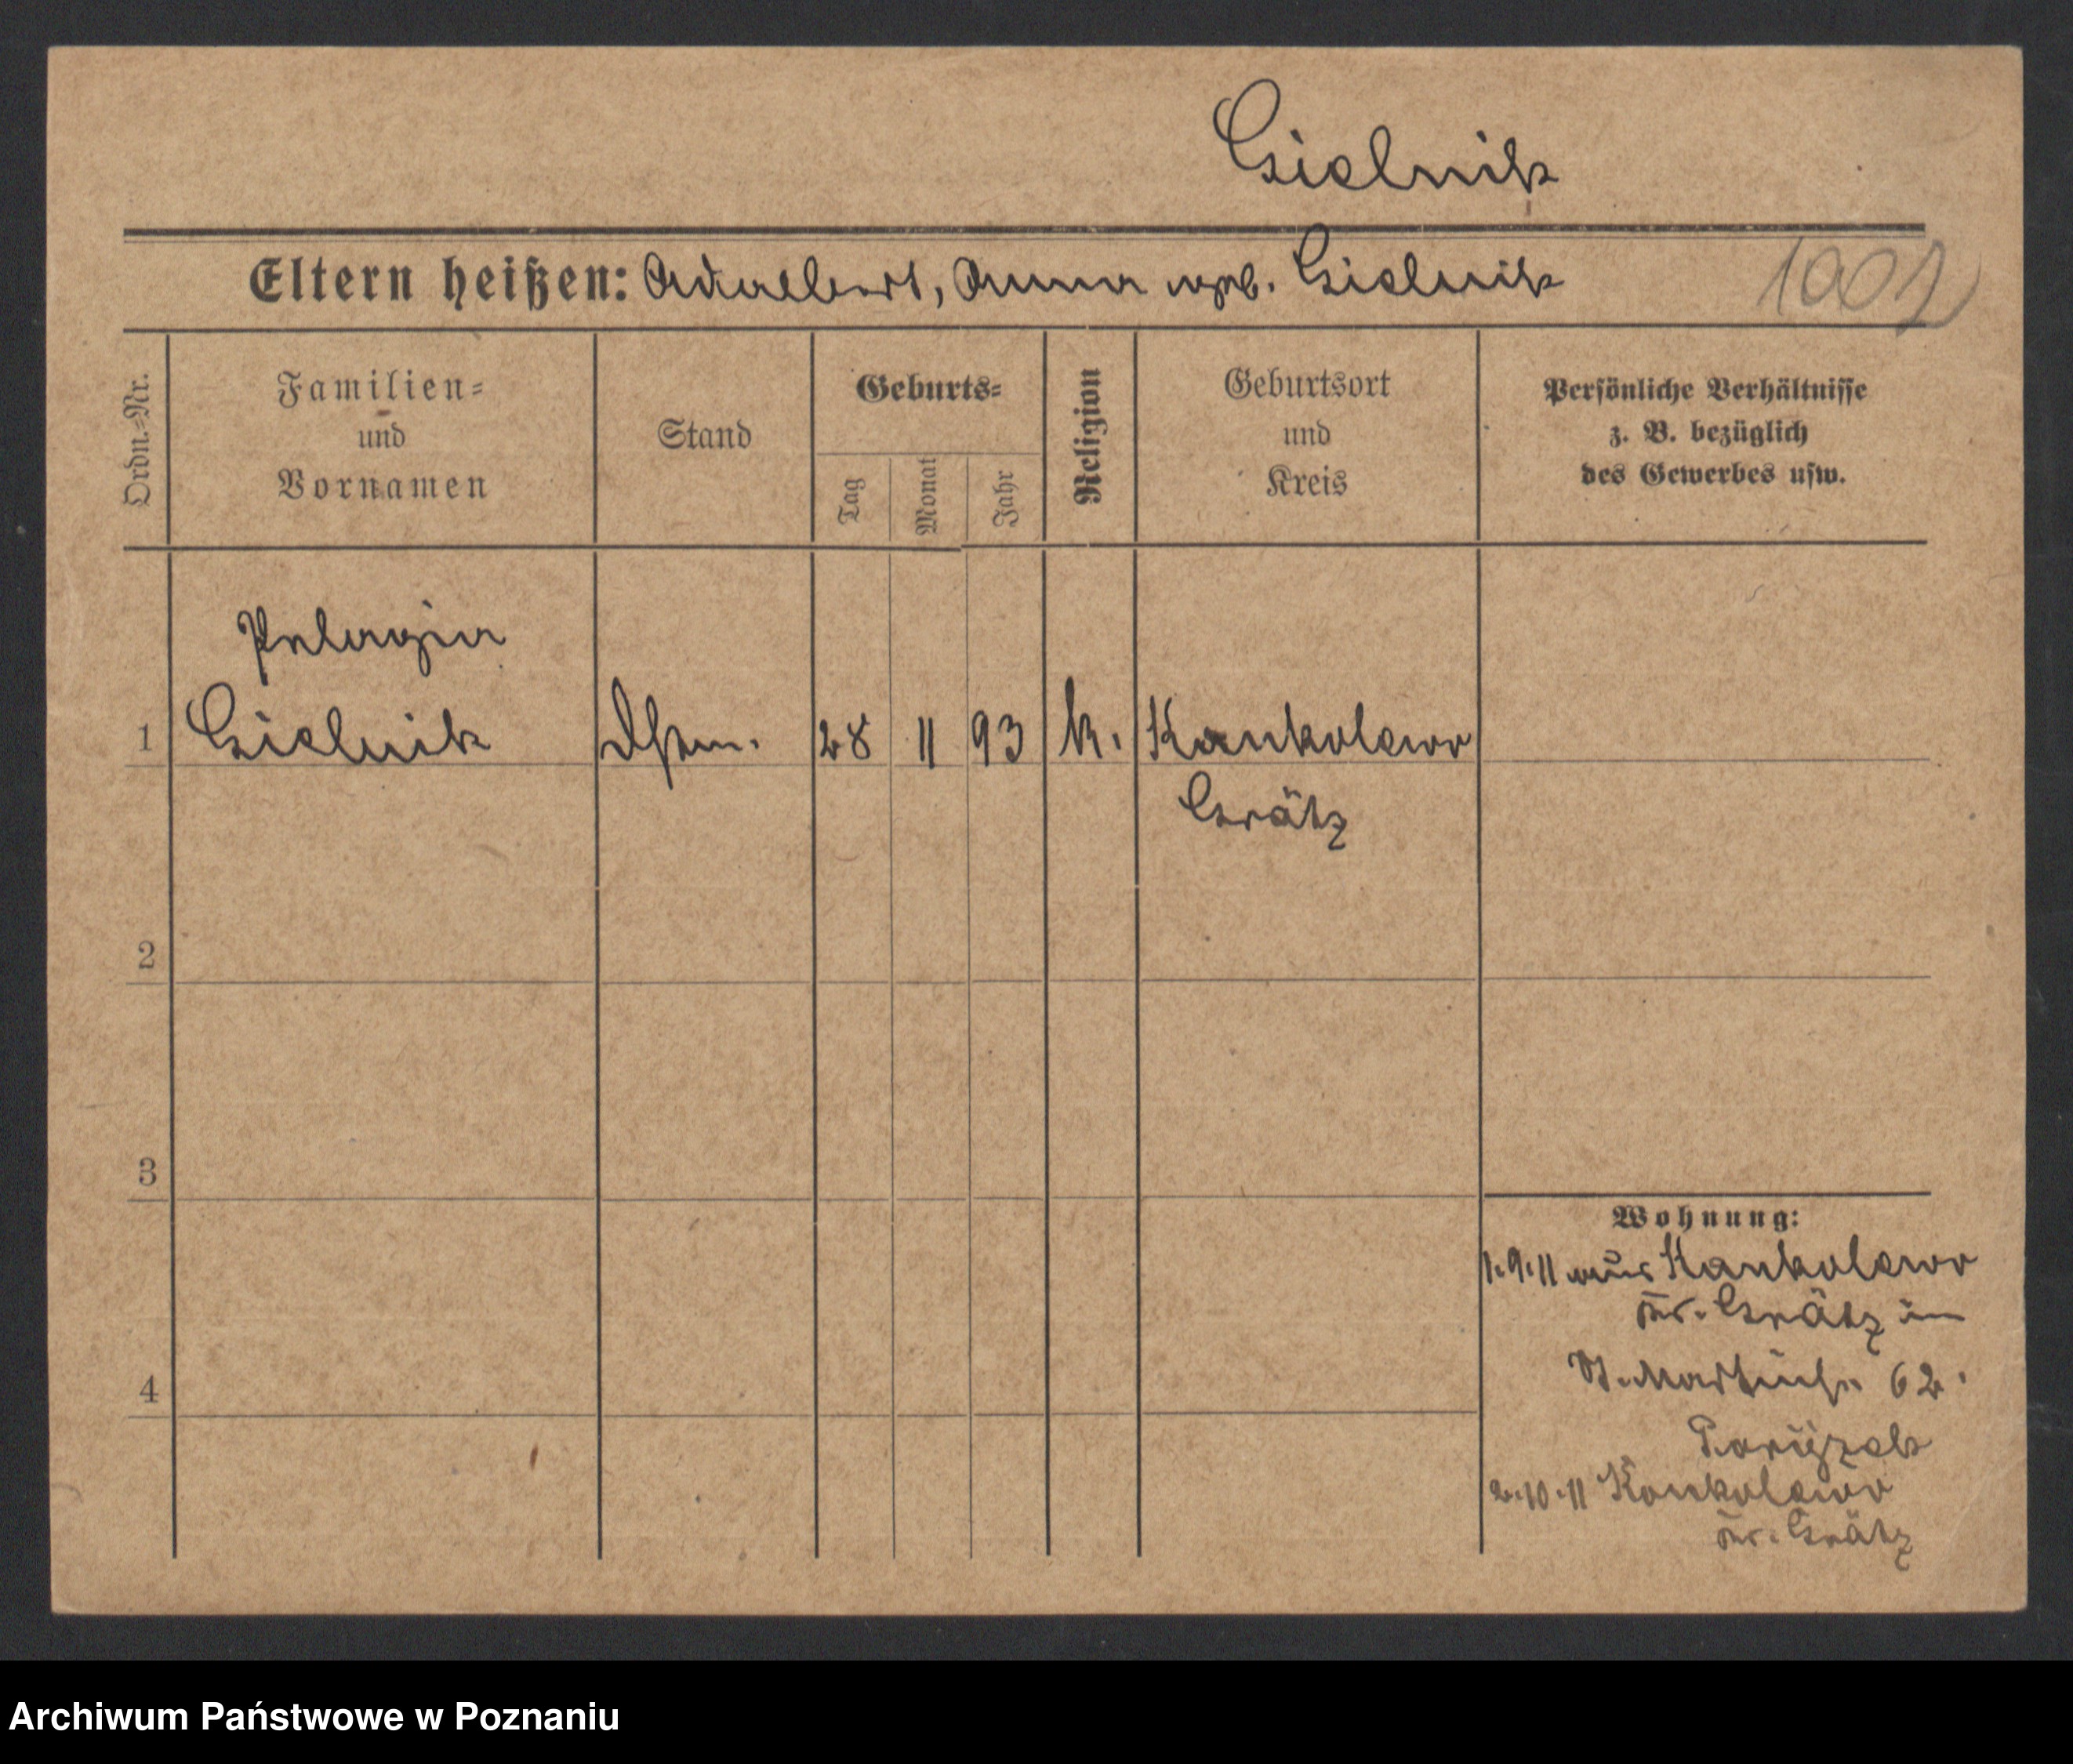 Gielnik
Eltern heißen: Adalbert, Anna geb. Gielnik
1002
Ordn.-Nr.
Familien-
und
Vornamen
Stand
Geburts-
Tag
Monat
Jahr
Religion
Geburtsort
und
Kreis
Persönliche Verhältnisse
z. B. bezüglich
des Gewerbes usw.
Pelagia
1 Gielnik Dstm. 28 11 93 k. Kankolewo
Grätz
2
3
4
Wohnung:
1.9.11 aus Kankolewo
Kr. Grätz in
St. Martinstr. 62.
2.10.11 Kankolewo
Kr. Grätz
Archiwum Państwowe w Poznaniu